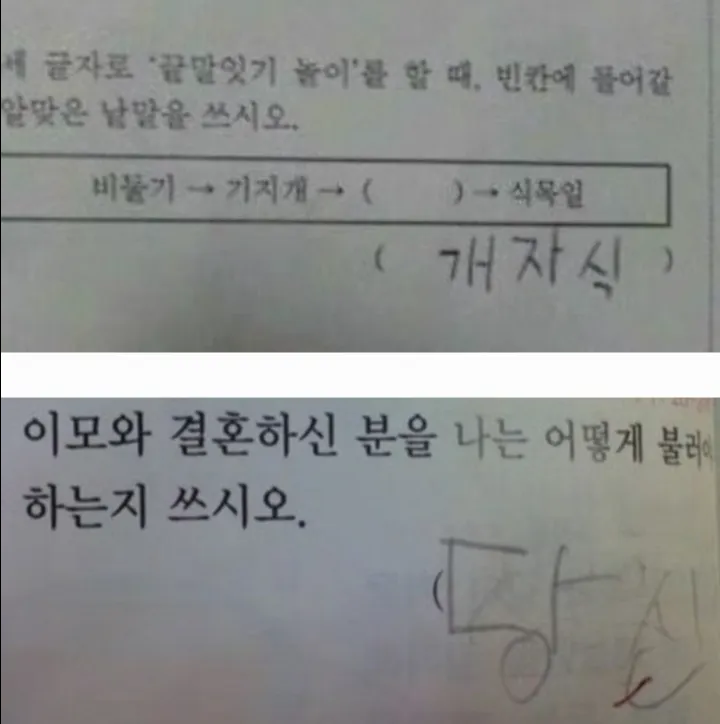 세 글자로 '끝말잇기 놀이'를 할 때, 빈칸에 들어갈
알맞은 낱말을 쓰시오.
비둘기 → 기지개 → ( ) → 식목일
( 개자식 )
이모와 결혼하신 분을 나는 어떻게 불러야
하는지 쓰시오.
( 당신